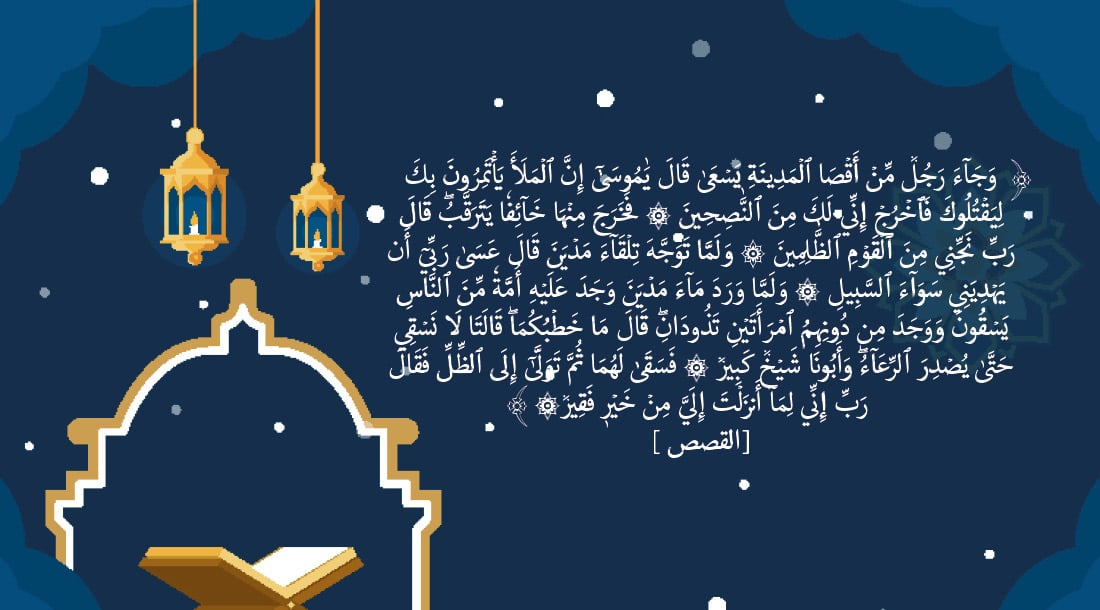 ﴿ وَجَآءَ رَجُلٞ مِّنۡ أَقۡصَا ٱلۡمَدِينَةِ يَسۡعَىٰ قَالَ يَٰمُوسَىٰٓ إِنَّ ٱلۡمَلَأَ يَأۡتَمِرُونَ بِكَ
لِيَقۡتُلُوكَ فَٱخۡرُجۡ إِنِّي لَكَ مِنَ ٱلنَّٰصِحِينَ ۞ فَخَرَجَ مِنۡهَا خَآئِفٗا يَتَرَقَّبُۖ قَالَ
رَبِّ نَجِّنِي مِنَ ٱلۡقَوۡمِ ٱلظَّٰلِمِينَ ۞ وَلَمَّا تَوَجَّهَ تِلۡقَآءَ مَدۡيَنَ قَالَ عَسَىٰ رَبِّيٓ أَن
يَهۡدِيَنِي سَوَآءَ ٱلسَّبِيلِ ۞ وَلَمَّا وَرَدَ مَآءَ مَدۡيَنَ وَجَدَ عَلَيۡهِ أُمَّةٗ مِّنَ ٱلنَّاسِ
يَسۡقُونَ وَوَجَدَ مِن دُونِهِمُ ٱمۡرَأَتَيۡنِ تَذُودَانِۖ قَالَ مَا خَطۡبُكُمَاۖ قَالَتَا لَا نَسۡقِي
حَتَّىٰ يُصۡدِرَ ٱلرِّعَآءُۖ وَأَبُونَا شَيۡخٞ كَبِيرٞ ۞ فَسَقَىٰ لَهُمَا ثُمَّ تَوَلَّىٰٓ إِلَى ٱلظِّلِّ فَقَالَ
رَبِّ إِنِّي لِمَآ أَنزَلۡتَ إِلَيَّ مِنۡ خَيۡرٖ فَقِيرٞ ۞ ﴾
[القصص ]